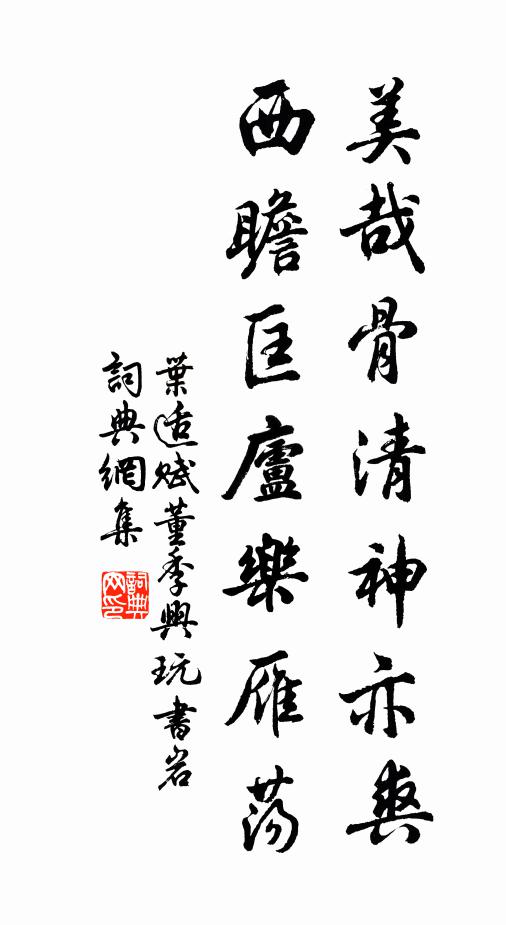 美哉骨清神亦爽
西瞻匡廬樂雁蕩
葉适賦董季興玩書岩
詞典網集
詞典网印